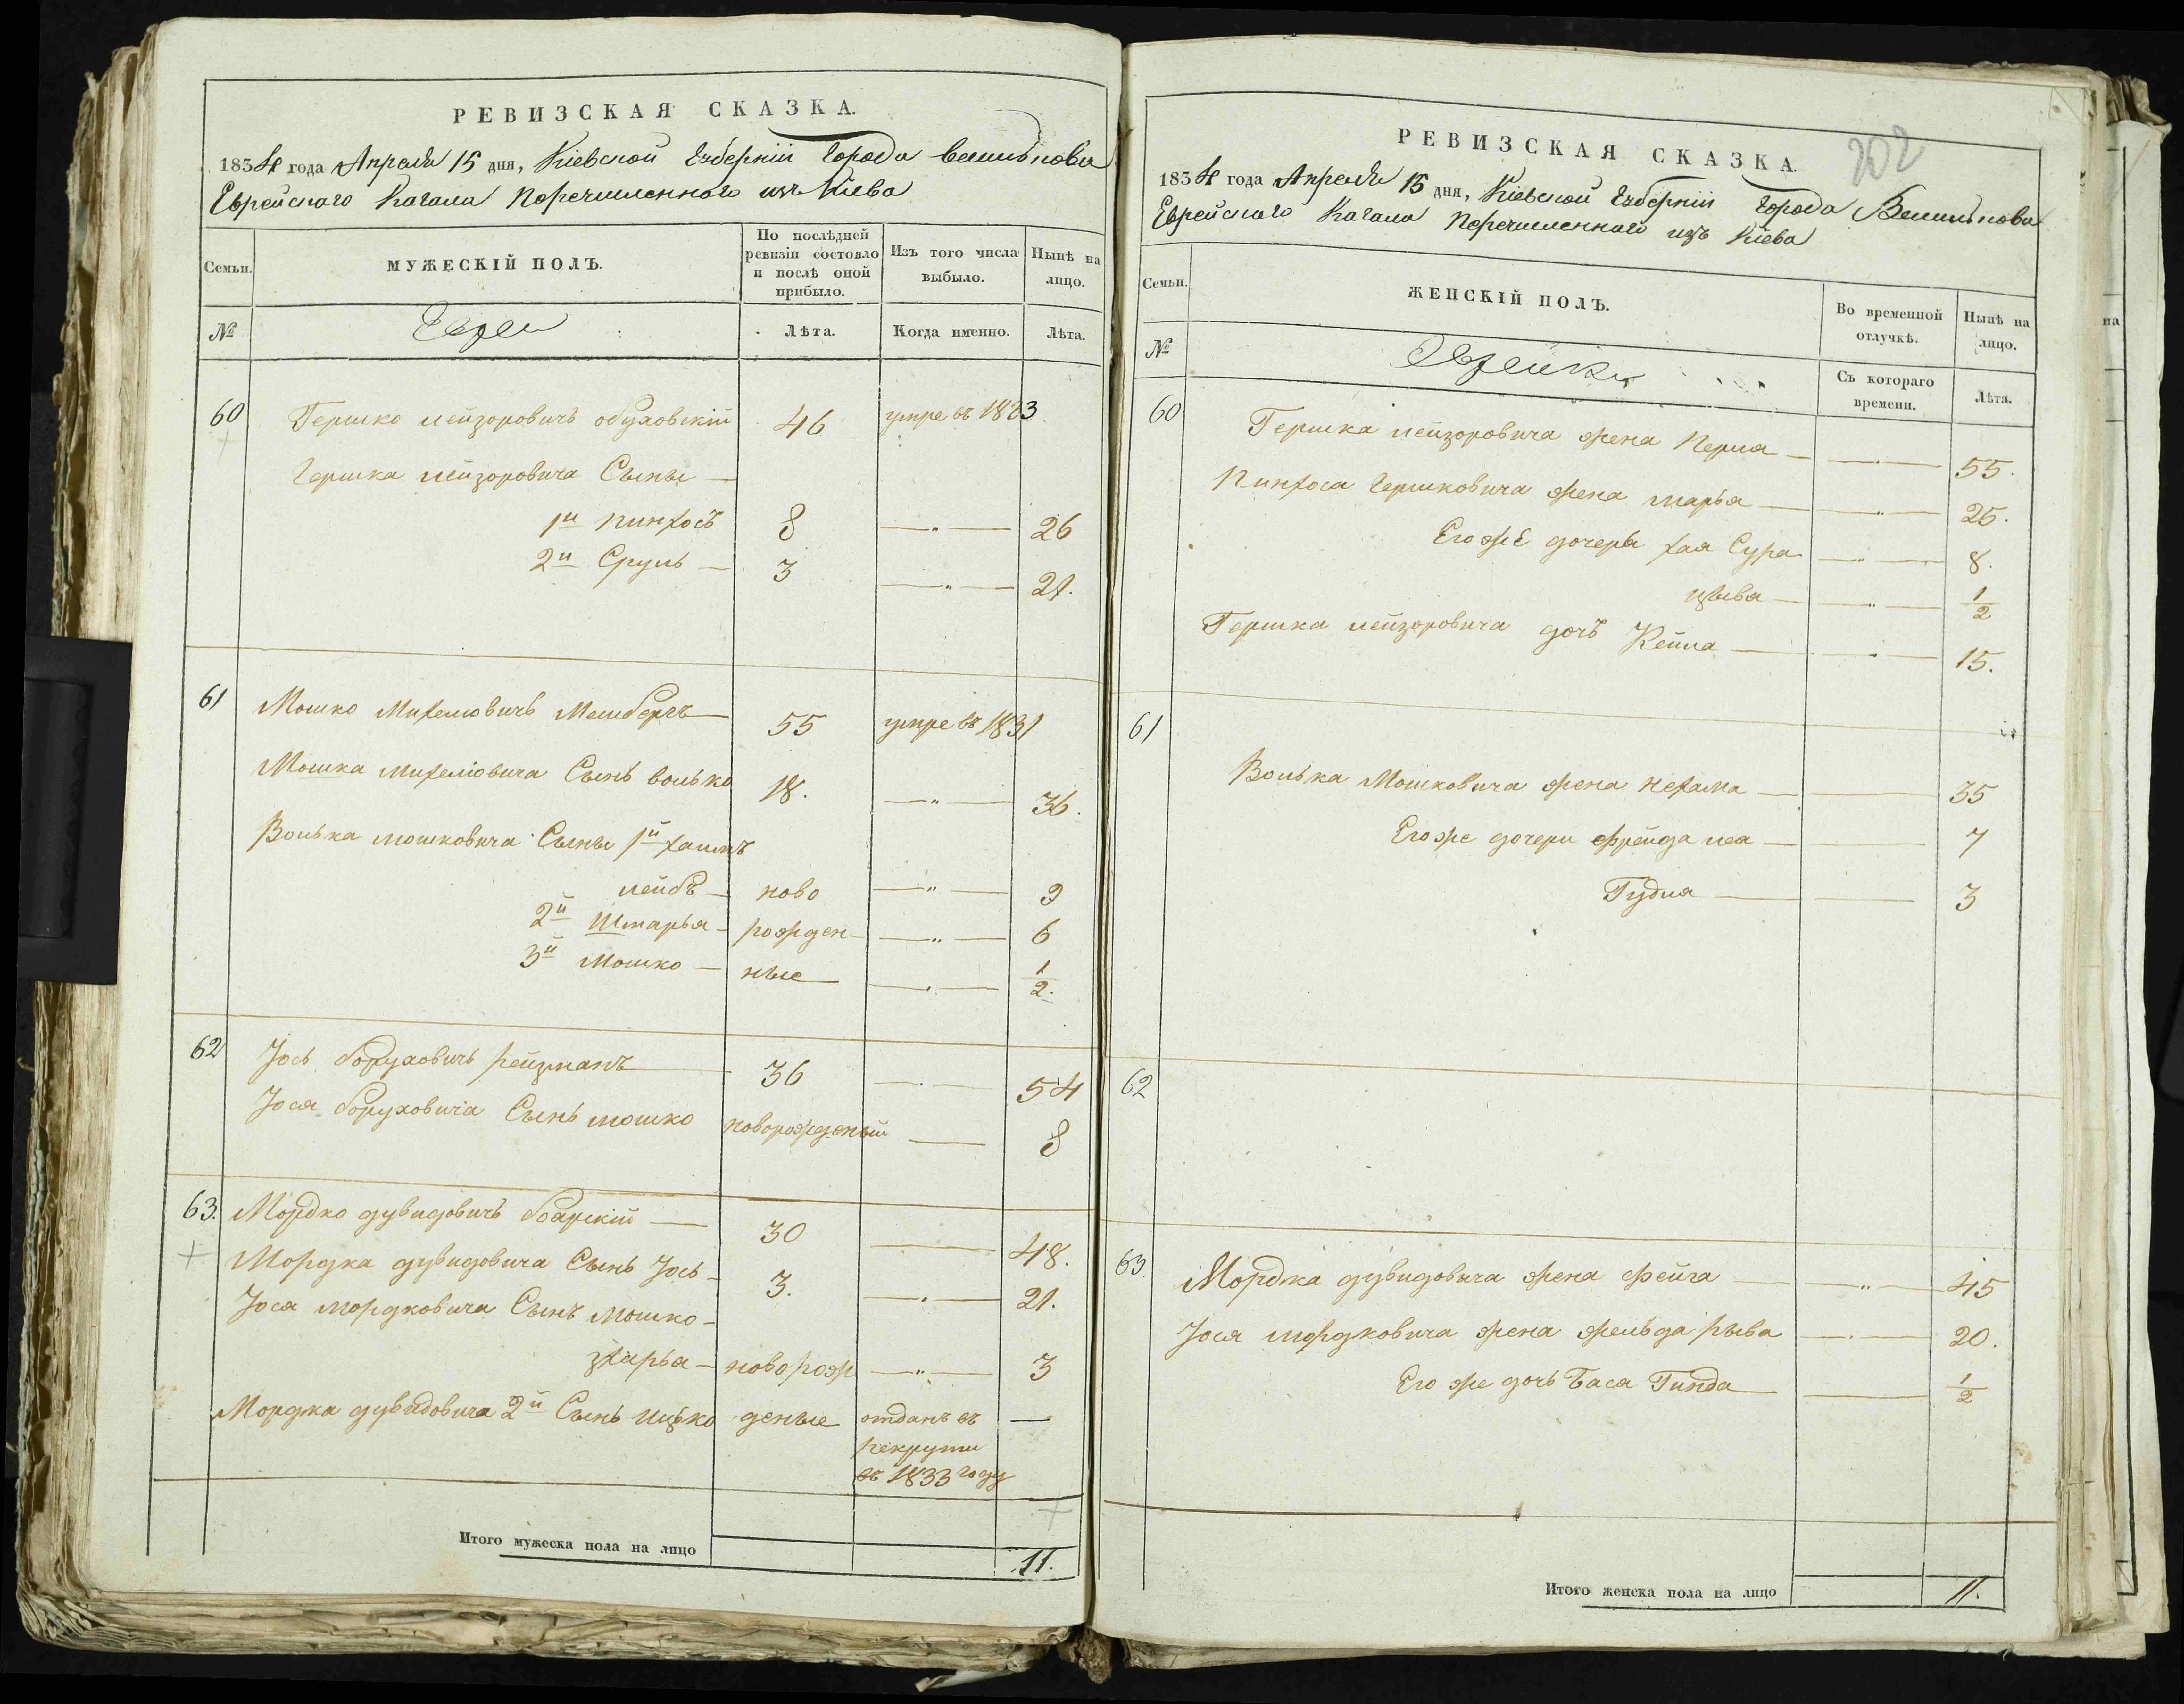 РЕВИЗСКАЯ СКАЗКА.
1834 года Апреля 15 дня, Кіевской Губерніи Города Василькова
Еврейскаго Кагала Перечисленного изъ Кіева
Семьи.
МУЖЕСКІЙ ПОЛЪ.
По послѣдней ревизіи состояло и послѣ оной прибыло.
Изъ того числа выбыло.
Нынѣ на лицо.
№
Евреи
Лѣта.
Когда именно.
Лѣта.
60 Гершко лейзоровичъ обуховскій 46 умре въ 1823
Гершка лейзоровича Сыны —
1й пинхосъ 8 —„— 26
2й Сруль — 3 —„— 21.
61 Мошко Михелювичъ 55 умре въ 1831
Мошка михелювича Сынъ волько 18. —„— 36.
Волька мошковича Сыны 1й хаимъ
лейбъ — ново —„— 9
2й Шмарья — рожден —„— 6
3й Мошко — ные —„— 1/2.
62 Іось боруховичъ рейзманъ 36 —„— 54
Іося боруховича Сынъ мошко новорожденый — 8
63. Мордко дувидовичъ боярскій — 30 — 48.
Мордка дувидовича Сынъ Іось — 3. —„— 21.
Іося мордковича Сынъ Мошко —
зхарья — новорож —„— 3
Мордка дувидовича 2й Сынъ ицько деные отданъ въ —
рекруты
въ 1833 году
Итого мужеска пола на лицо 11.
202
РЕВИЗСКАЯ СКАЗКА
1834 года Апреля 15 дня, Кіевской Губерніи Города Василькова
Еврейскаго Кагала Перечисленного изъ Кіева
Семьи.
ЖЕНСКІЙ ПОЛЪ.
Во временной отлучкѣ.
Нынѣ на лицо.
№
Еврейки
Съ котораго времени.
Лѣта.
60 Гершка лейзоровича жена Перла — —„— 55.
Пинхоса Гершковича жена марья — —„— 25.
Егоже дочерь хая Сура —„— 8.
цыва — —„— 1/2
Гершка лейзоровича дочь Кейла — —„— 15.
61
Волька Мошковича жена нехама — — 35
Егоже дочери фрейда леа — — 7
Гудля — — 3
62
63 Мордка дувидовича жена фейга — —„— 45
Іося мордковича жена жельда рыва —„— 20.
Его же дочь баса Гинда — — 1/2
Итого женска пола на лицо 11.